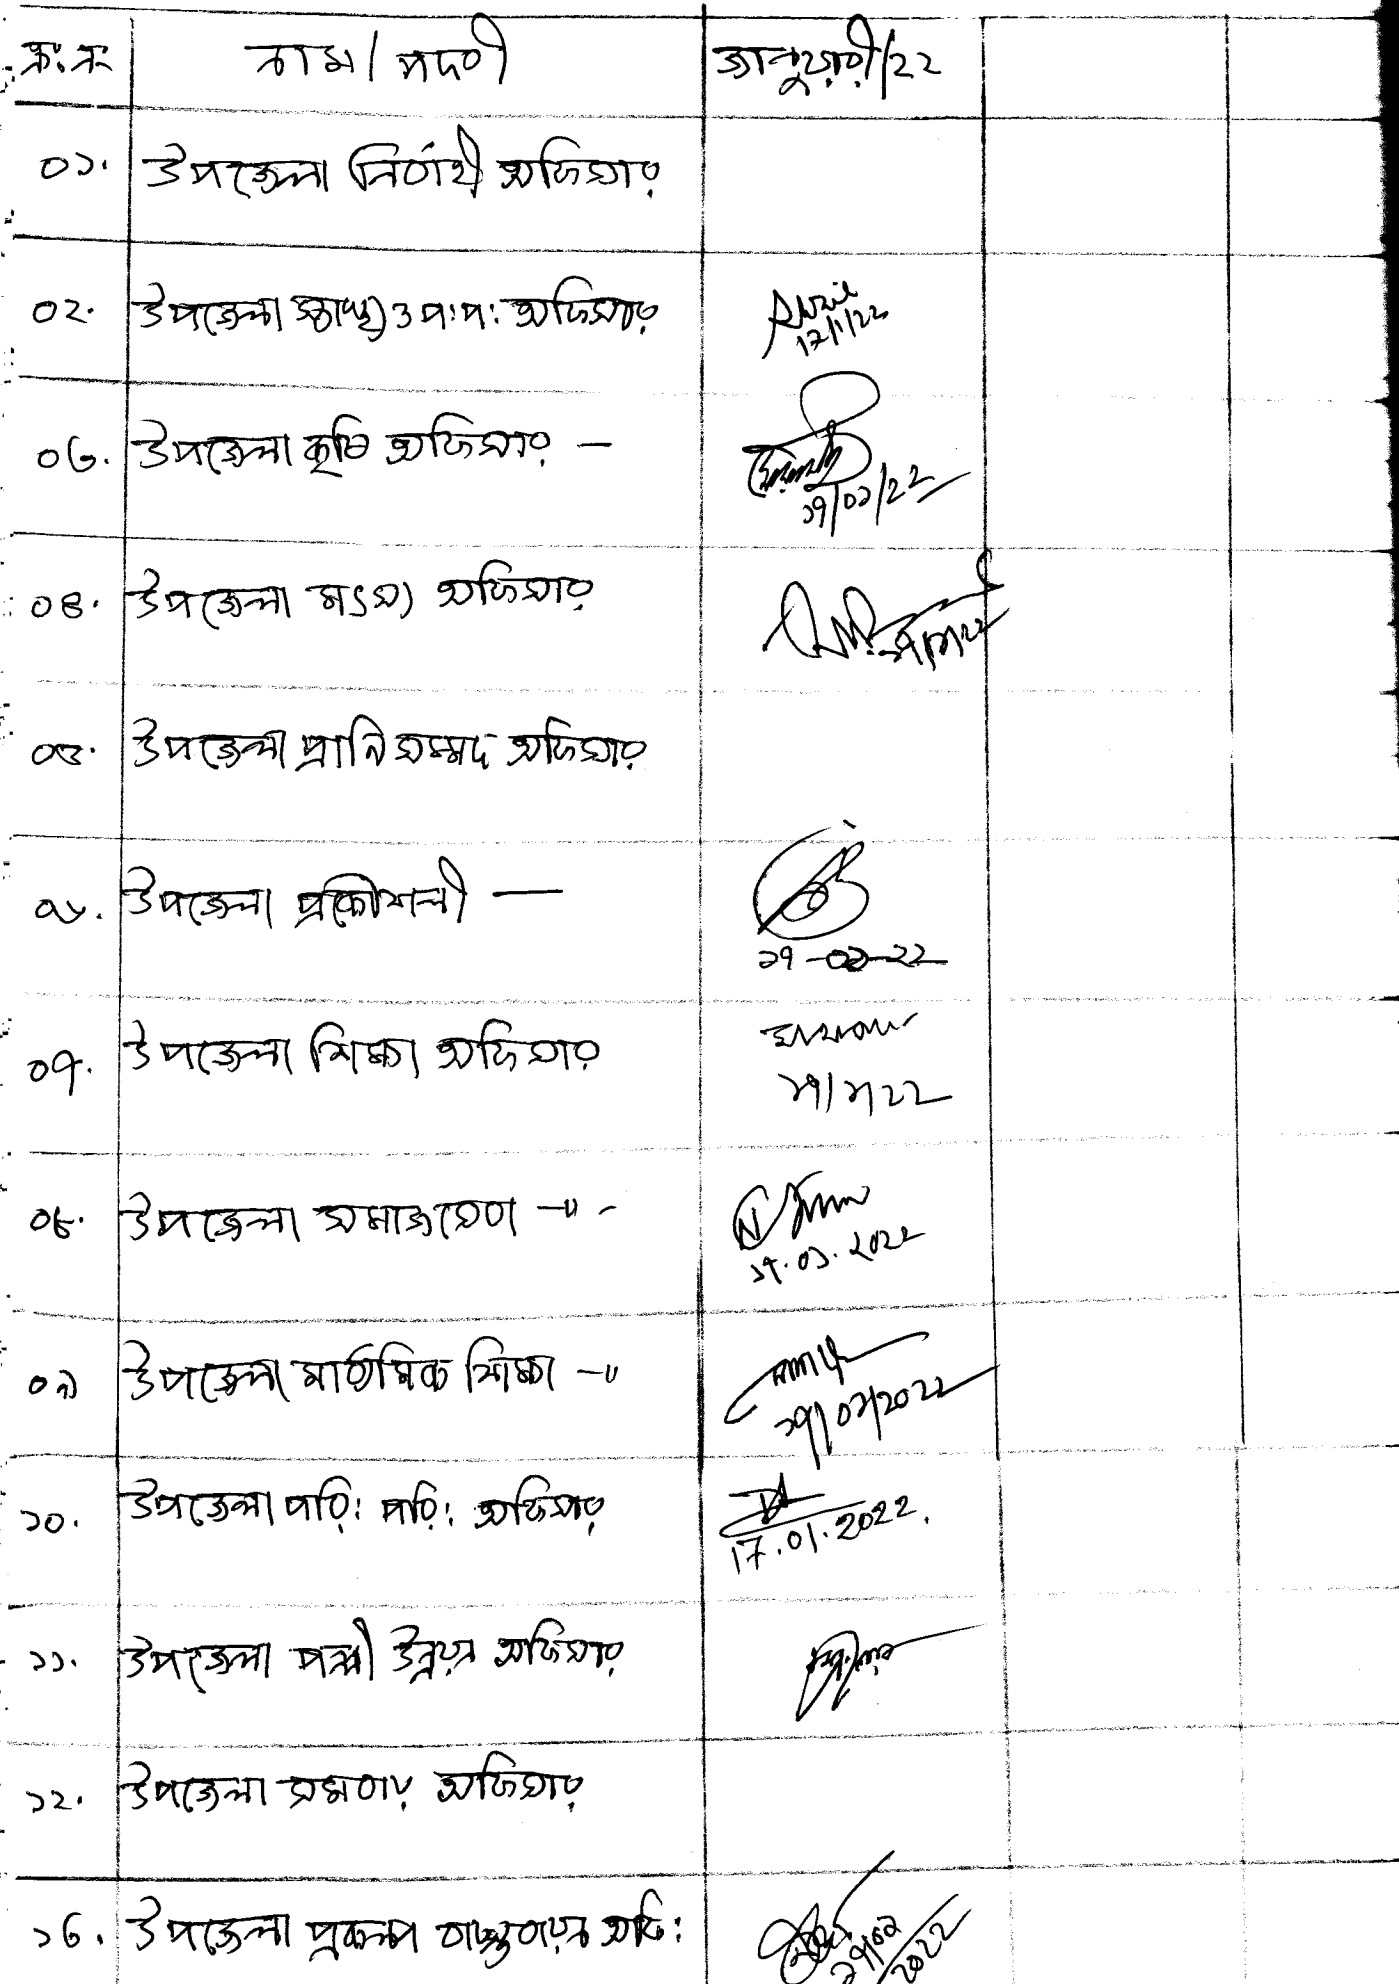 ক্র: নং নাম / পদবী জানুয়ারী/২২
০১. উপজেলা নির্বাহী অফিসার
০২. উপজেলা স্বাস্থ্য ও প: প: অফিসার
17/1/22
০৩. উপজেলা কৃষি অফিসার —
১৭/০১/২২
০৪. উপজেলা মৎস্য অফিসার
০৫. উপজেলা প্রানি সম্পদ অফিসার
০৬. উপজেলা প্রকৌশলী —
১৭-০১-২২
০৭. উপজেলা শিক্ষা অফিসার
১৭/১/২২
০৮. উপজেলা সমাজসেবা —〃-
১৭.০১.২০২২
০৯ উপজেলা মাধ্যমিক শিক্ষা —〃
১৭/০১/২০২২
১০. উপজেলা পরি: পরি: অফিসার
17.01.2022.
১১. উপজেলা পল্লী উন্নয়ন অফিসার
১২. উপজেলা সমবায় অফিসার
১৩. উপজেলা প্রকল্প বাস্তবায়ন অফি:
১৭/০১
২০২২